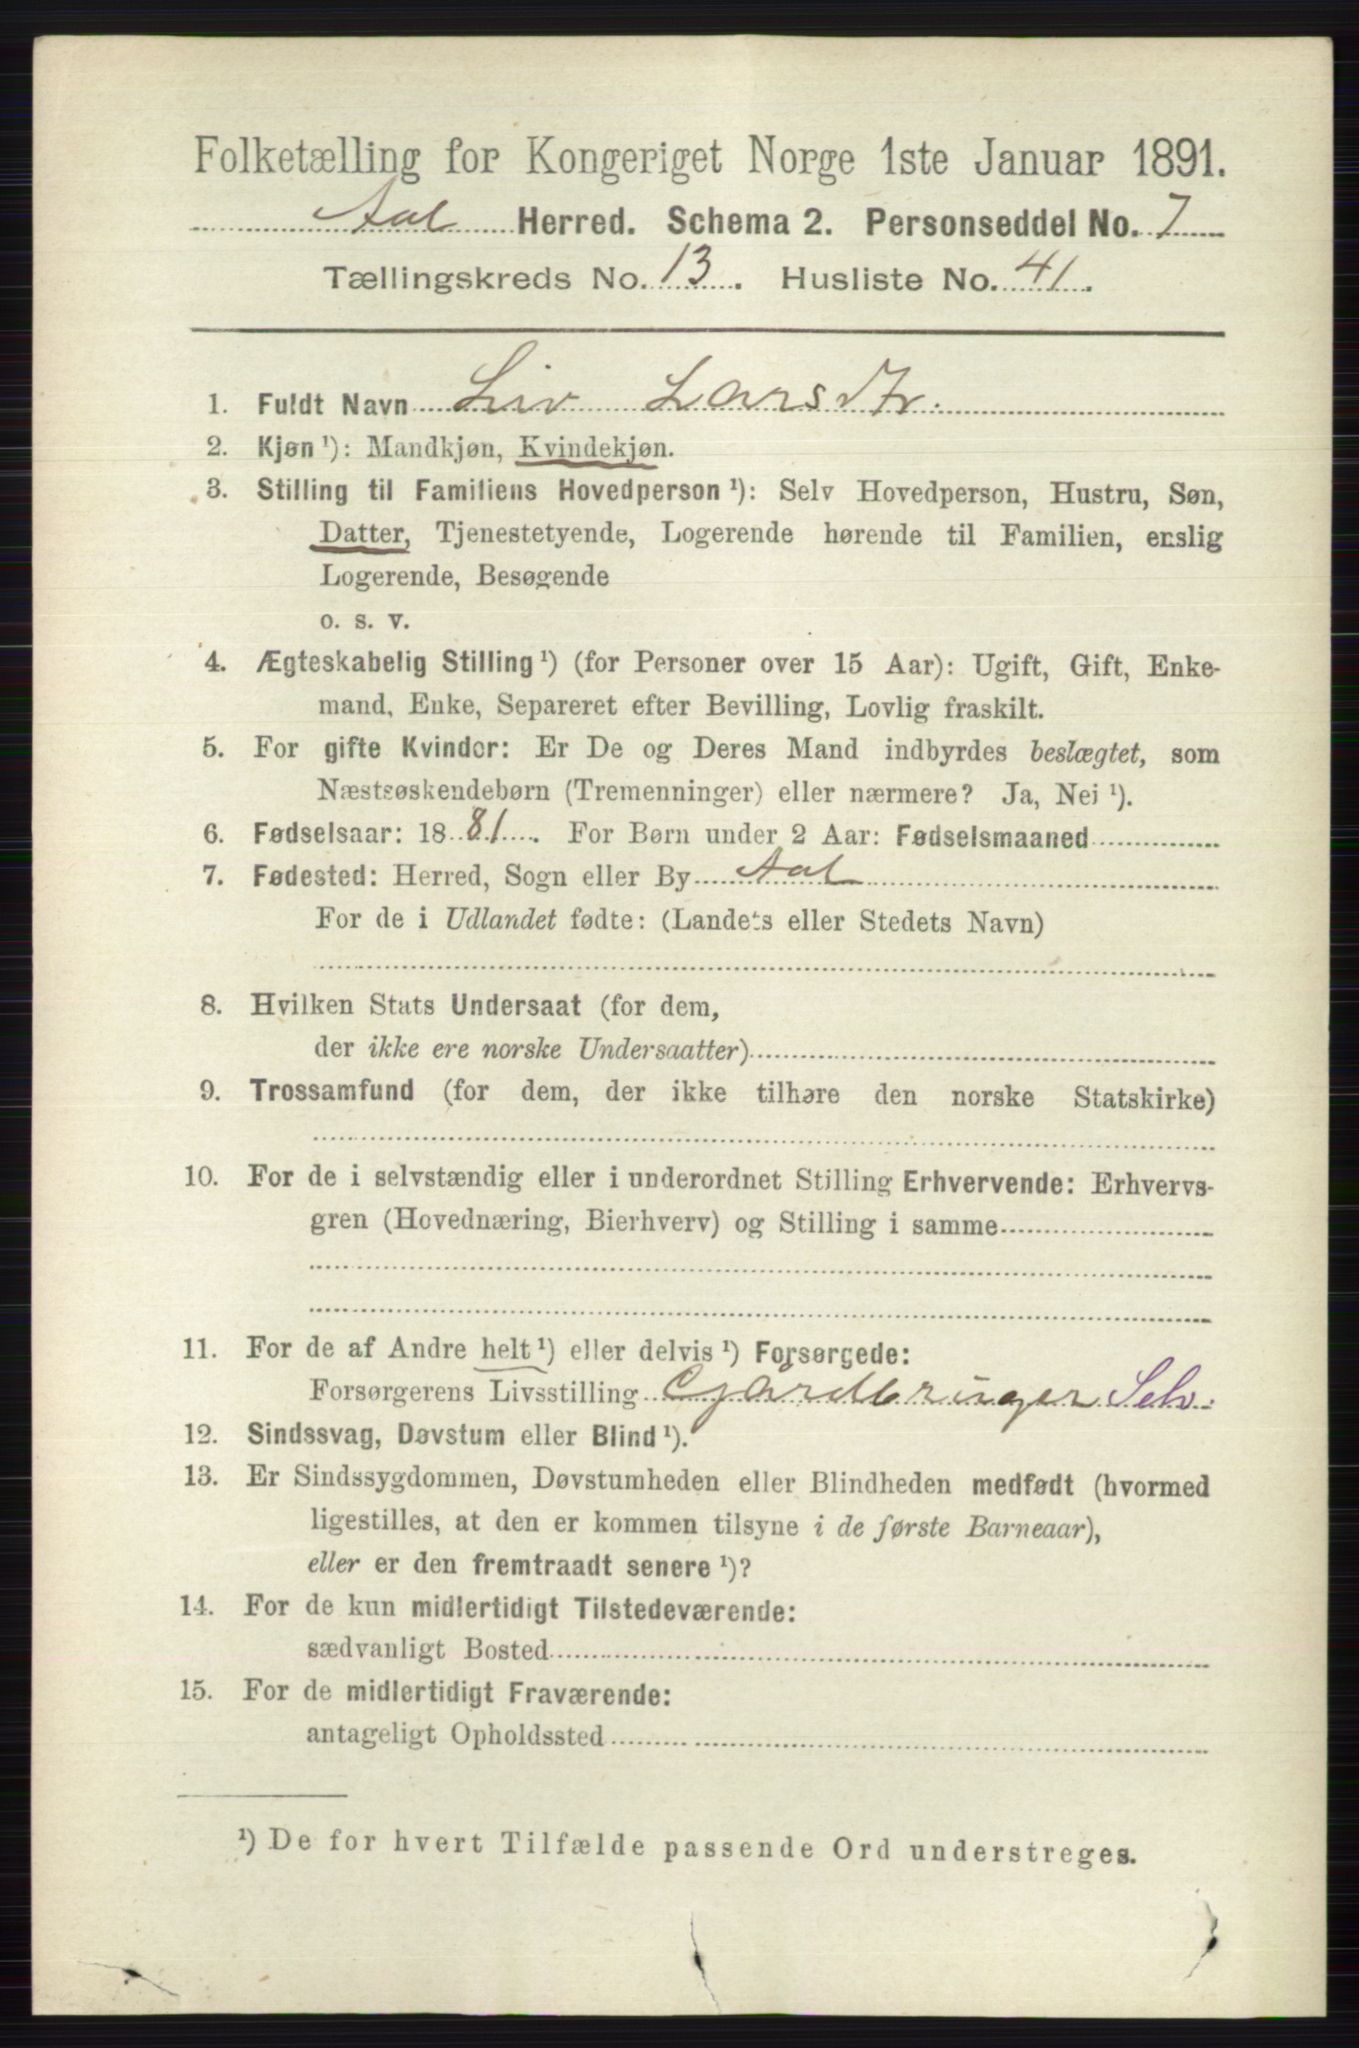 Folketælling for Kongeriget Norge 1ste Januar 1891.
Aal Herred. Schema 2. Personseddel No. 7
Tællingskreds No. 13. Husliste No. 41.
1. Fuldt Navn Liv Larsdtr.
2. Kjøn ¹): Mandkjøn, Kvindekjøn.
3. Stilling til Familiens Hovedperson ¹): Selv Hovedperson, Hustru, Søn,
Datter, Tjenestetyende, Logerende hørende til Familien, enslig
Logerende, Besøgende
o. s. v.
4. Ægteskabelig Stilling ¹) (for Personer over 15 Aar): Ugift, Gift, Enke-
mand, Enke, Separeret efter Bevilling, Lovlig fraskilt.
5. For gifte Kvinder: Er De og Deres Mand indbyrdes beslægtet, som
Næstsøskendebørn (Tremenninger) eller nærmere? Ja, Nei ¹).
6. Fødselsaar: 1881. For Børn under 2 Aar: Fødselsmaaned
7. Fødested: Herred, Sogn eller By Aal
For de i Udlandet fødte: (Landets eller Stedets Navn)
8. Hvilken Stats Undersaat (for dem,
der ikke ere norske Undersaatter)
9. Trossamfund (for dem, der ikke tilhøre den norske Statskirke)
10. For de i selvstændig eller i underordnet Stilling Erhvervende: Erhvervs-
gren (Hovednæring, Bierhverv) og Stilling i samme
11. For de af Andre helt ¹) eller delvis ¹) Forsørgede:
Forsørgerens Livsstilling Gjardbruger Selv.
12. Sindssvag, Døvstum eller Blind ¹).
13. Er Sindssygdommen, Døvstumheden eller Blindheden medfødt (hvormed
ligestilles, at den er kommen tilsyne i de første Barneaar),
eller er den fremtraadt senere ¹)?
14. For de kun midlertidigt Tilstedeværende:
sædvanligt Bosted
15. For de midlertidigt Fraværende:
antageligt Opholdssted
¹) De for hvert Tilfælde passende Ord understreges.